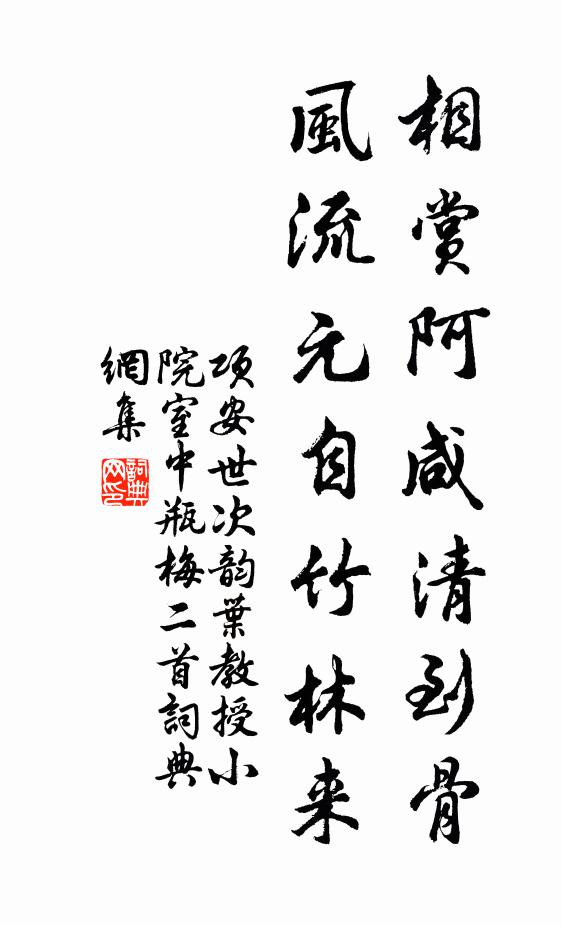 相賞阿咸清到骨
風流元自竹林来
項安世次韵葉教授小
院室中瓶梅二首詞典
網集
詞典
网印